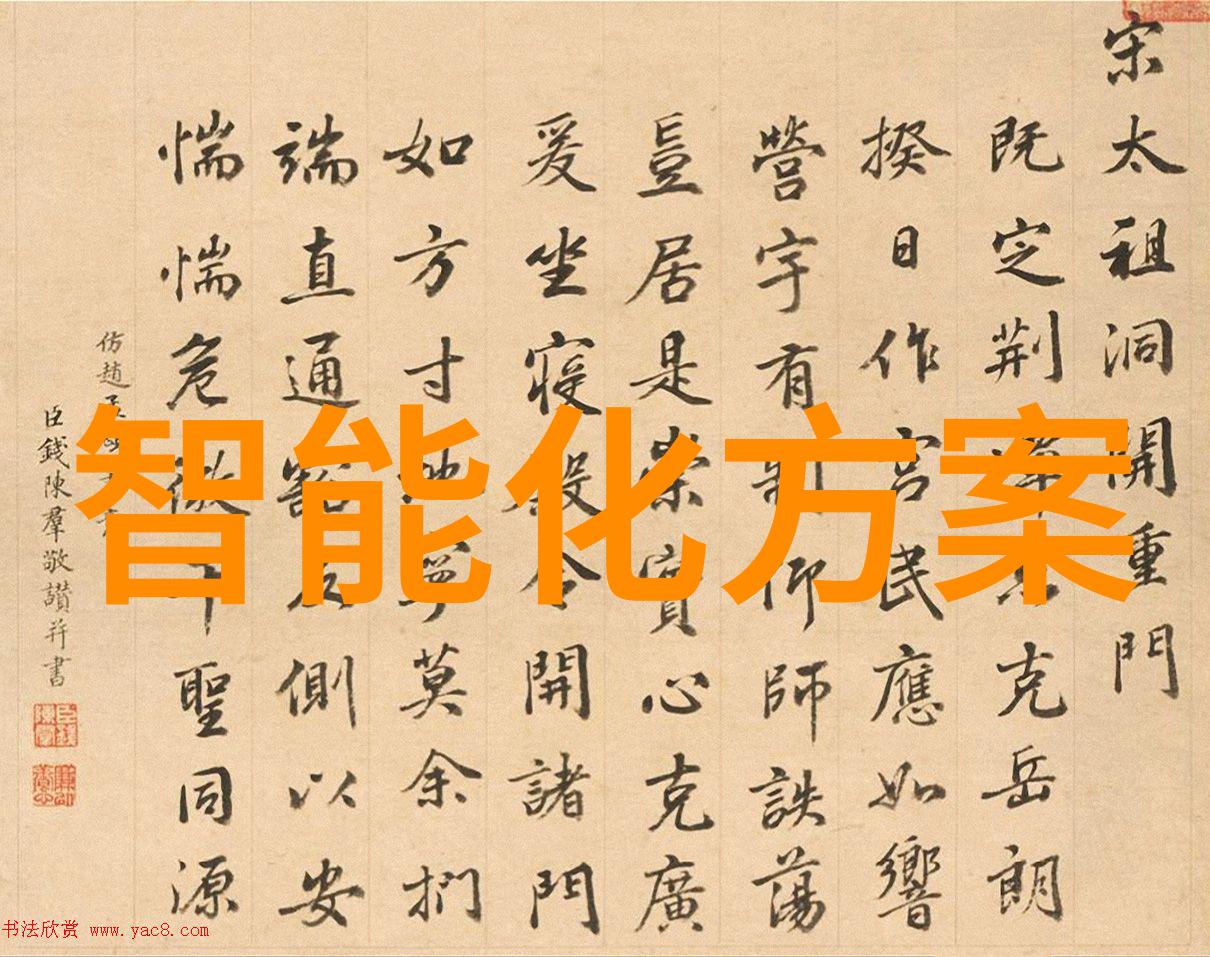 宋太祖洞開重門
既定荆克岳朗
揆日作宮民應如響
營宇有制仰師詄蕩
豈居是崇實心克廣
爰坐寢殿令開諸門
如方寸地莫余捫
端直通豁反側以安
惴惴危微千聖同源
仿趙
臣錢陳羣敬讃并書
智能化方案
书法欣赏 www.yac8.com